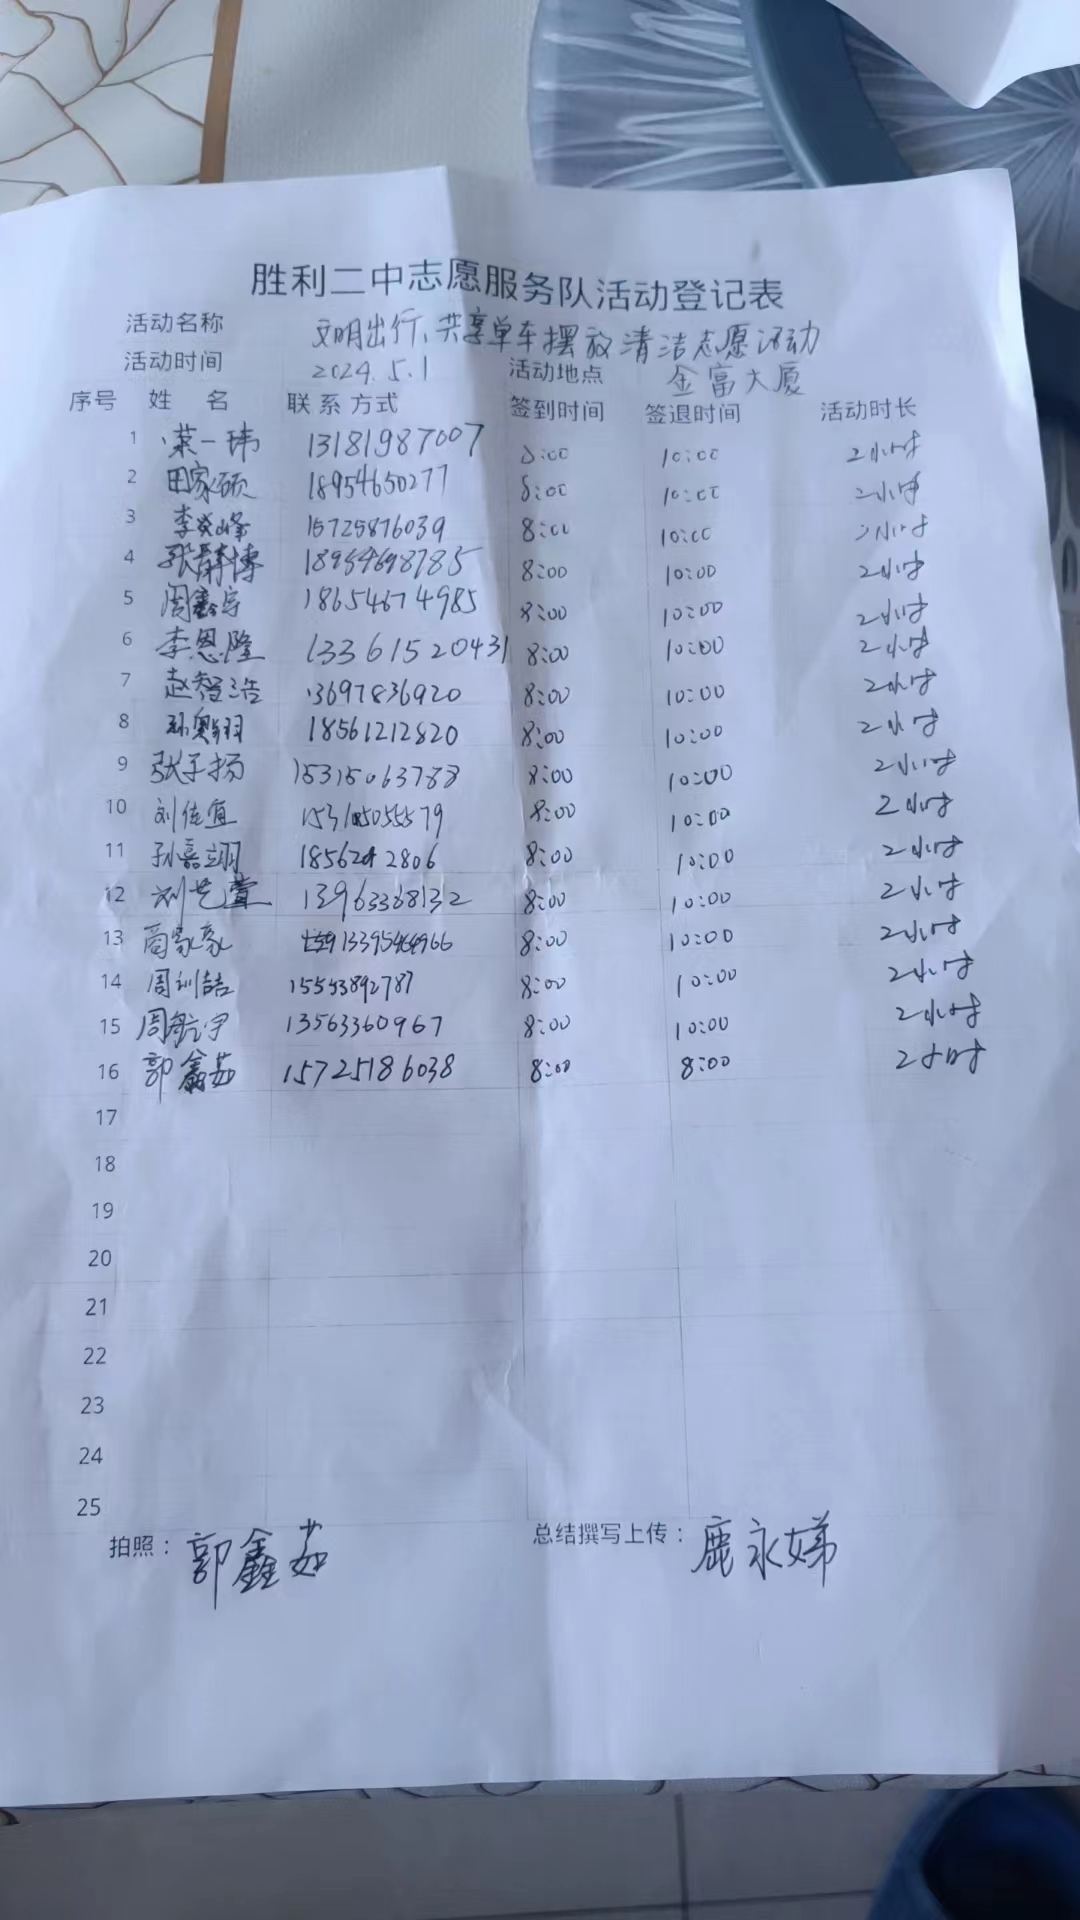 胜利二中志愿服务队活动登记表
活动名称 文明出行、共享单车摆放清洁志愿活动
活动时间 2024.5.1 活动地点 金富大厦
序号 姓 名 联系方式 签到时间 签退时间 活动时长
1 一玮 13181987007 8:00 10:00 2小时
2 田家硕 18954650277 8:00 10:00 2小时
3 李炎峰 15725876039 8:00 10:00 2小时
4 张静博 18954698785 8:00 10:00 2小时
5 周鑫宇 18654674985 8:00 10:00 2小时
6 李恩隆 13361520431 8:00 10:00 2小时
7 赵智浩 13697836920 8:00 10:00 2小时
8 孙奥翔 18561212820 8:00 10:00 2小时
9 张子扬 15315063788 8:00 10:00 2小时
10 刘佳宜 8:00 10:00 2小时
11 孙嘉翊 8:00 10:00 2小时
12 刘艺萱 13963368132 8:00 10:00 2小时
13 商家豪 8:00 10:00 2小时
14 周训喆 15553892787 8:00 10:00 2小时
15 周航宇 13563360967 8:00 10:00 2小时
16 郭鑫茹 15725186038 8:00 8:00 2小时
17
18
19
20
21
22
23
24
25
拍照： 郭鑫茹 总结撰写上传： 鹿永娣